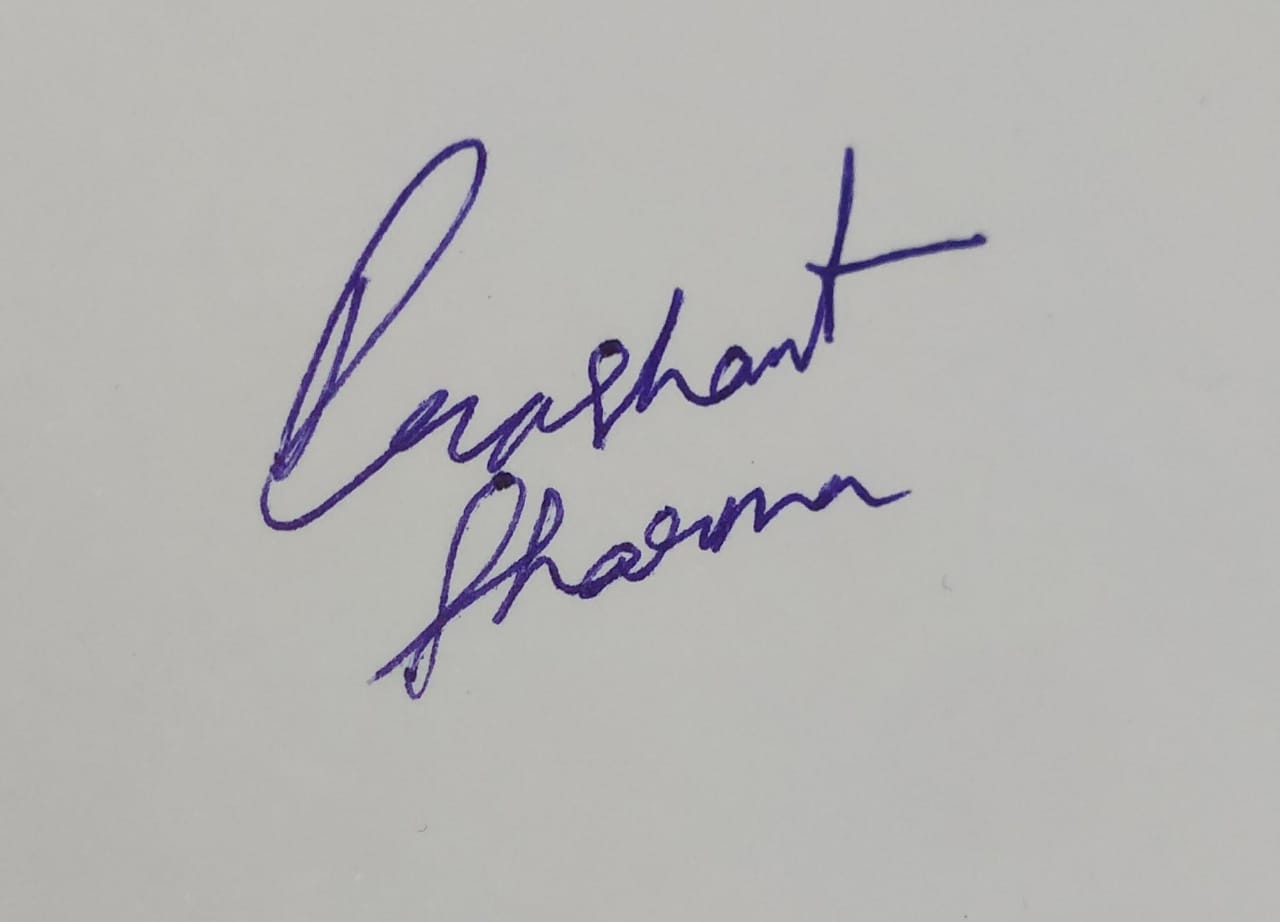 Prashant
Sharma